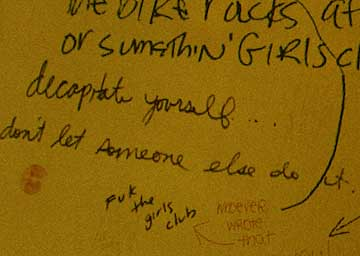 THE BIKE RACKS AT
OR SUMETHIN' GIRLS
decapitate yourself...
don't let someone else do it.
FUK
the
girls
club
WHOEVER
WROTE
THAT